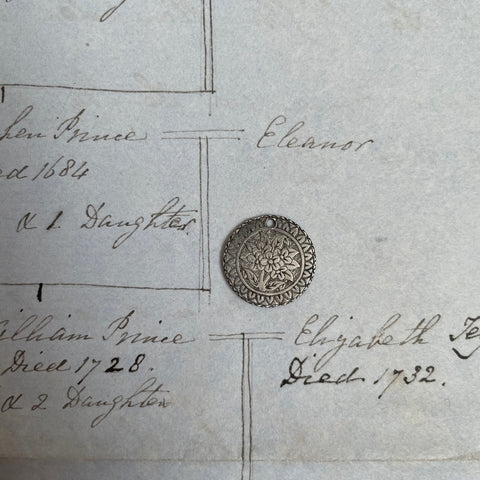 hen Prince
ed 1684
& 1. Daughter.
Eleanor
illiam Prince
Died 1728.
& 2 Daughter
Elizabeth
Died 1732.